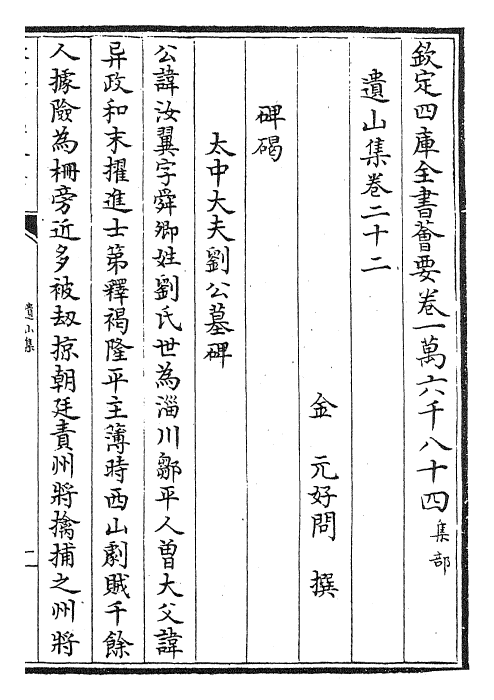 欽定四庫全書薈要卷一萬六千八十四集部
遺山集卷二十二
金元好問撰
碑碣
太中大夫劉公墓碑
公諱汝翼字舜卿姓劉氏世為淄川鄒平人曽大父諱
异政和末擢進士第釋褐隆平主簿時西山劇賊千餘
人據險為柵旁近多被刼掠朝廷責州將擒捕之州將
遺山集